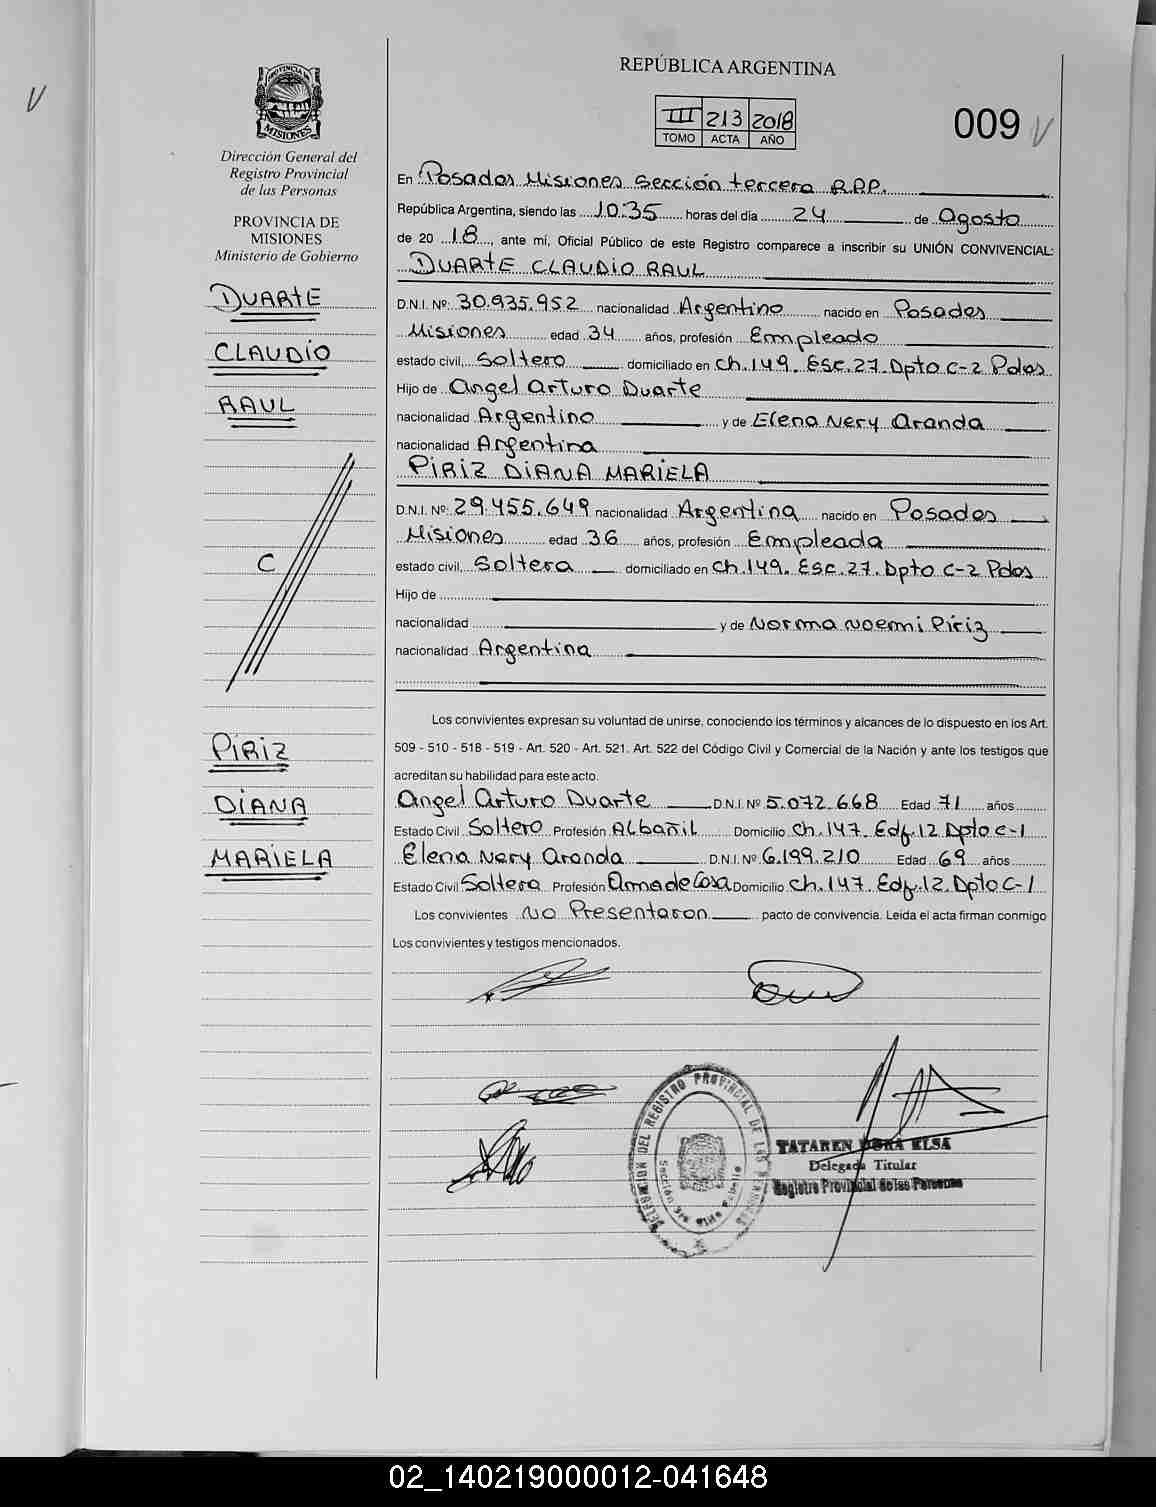 REPÚBLICA ARGENTINA
PROVINCIA DE
MISIONES
III 213 2018
TOMO ACTA AÑO
009
V
V
Dirección General del
Registro Provincial
de las Personas
PROVINCIA DE
MISIONES
Ministerio de Gobierno
DUARTE
CLAUDIO
RAUL
C
PIRIZ
DIANA
MARIELA
En Posadas Misiones Sección tercera R.P.P.
República Argentina, siendo las 10:35 horas del día 24 de Agosto
de 20 18, ante mí, Oficial Público de este Registro comparece a inscribir su UNIÓN CONVIVENCIAL:
DUARTE CLAUDIO RAUL
D.N.I. Nº: 30.935.952 nacionalidad Argentino nacido en Posadas
Misiones edad 34 años, profesión Empleado
estado civil, Soltero domiciliado en Ch. 149. Esc. 27. Dpto C-2 Pdas
Hijo de Angel Arturo Duarte
nacionalidad Argentino y de Elena Nery Aranda
nacionalidad Argentina
PIRIZ DIANA MARIELA
D.N.I. Nº: 29.455.649 nacionalidad Argentina nacido en Posadas
Misiones edad 36 años, profesión Empleada
estado civil, Soltera domiciliado en Ch. 149. Esc. 27. Dpto C-2 Pdas
Hijo de
nacionalidad y de Norma Noemi Piriz
nacionalidad Argentina
Los convivientes expresan su voluntad de unirse, conociendo los términos y alcances de lo dispuesto en los Art.
509 - 510 - 518 - 519 - Art. 520 - Art. 521. Art. 522 del Código Civil y Comercial de la Nación y ante los testigos que
acreditan su habilidad para este acto.
Angel Arturo Duarte D.N.I. Nº 5.072.668 Edad 71 años
Estado Civil Soltero Profesión Albañil Domicilio Ch. 147. Edf. 12 Dpto C-1
Elena Nery Aranda D.N.I. Nº 6.199.210 Edad 69 años
Estado Civil Soltera Profesión Ama de Casa Domicilio Ch. 147. Edf. 12. Dpto C-1
Los convivientes NO Presentaron pacto de convivencia. Leída el acta firman conmigo
Los convivientes y testigos mencionados.
DELEGACION DEL REGISTRO PROVINCIAL DE LAS PERSONAS
TATAREN DORA ELSA
Delegada Titular
Registro Provincial de las Personas
02_140219000012-041648